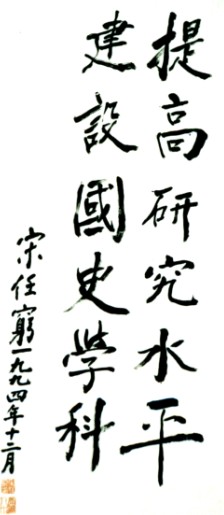 提高研究水平
建設國史學科
宋任窮一九九四年十二月